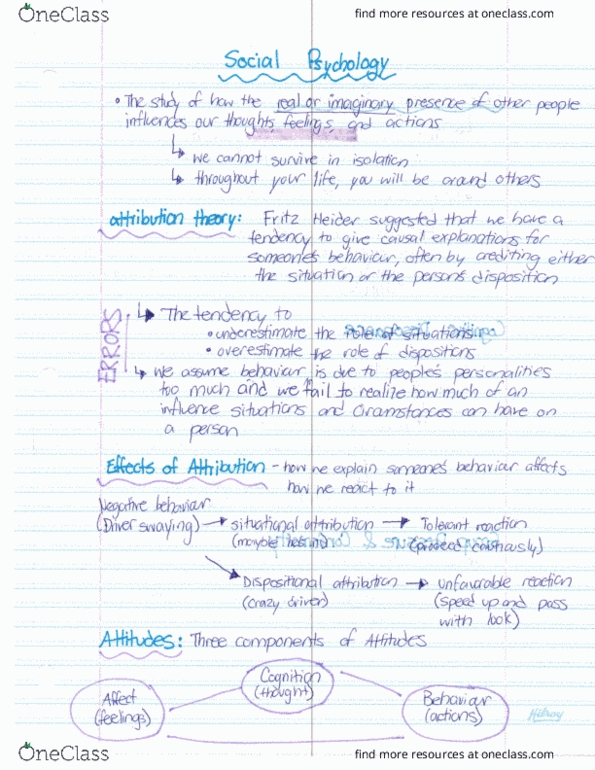 OneClass
find more resources at oneclass.com
Social Psychology
• The study of how the real or imaginary presence of other people
influences our thoughts, feelings, and actions
↳ we cannot survive in isolation
↳ throughout your life, you will be around others
attribution theory: Fritz Heider suggested that we have a
tendency to give causal explanations for
someone's behaviour, often by crediting either
the situation or the person's disposition
ERRORS
↳ The tendency to
• underestimate the role of situations
• overestimate the role of dispositions
↳ we assume behaviour is due to people's personalities
too much and we fail to realize how much of an
influence situations and circumstances can have on
a person
Effects of Attribution - how we explain someone's behaviour affects
how we react to it
Negative behaviour
(Driver swaying) → situational attribution → Tolerant reaction
(maybe he's) (proceed cautiously)
Dispositional attribution → unfavorable reaction
(crazy driver) (speed up and pass
with look)
Attitudes: Three components of Attitudes
Cognition
(thought)
Affect
(feelings)
Behaviour
(actions)
Hilroy
OneClass
find more resources at oneclass.com